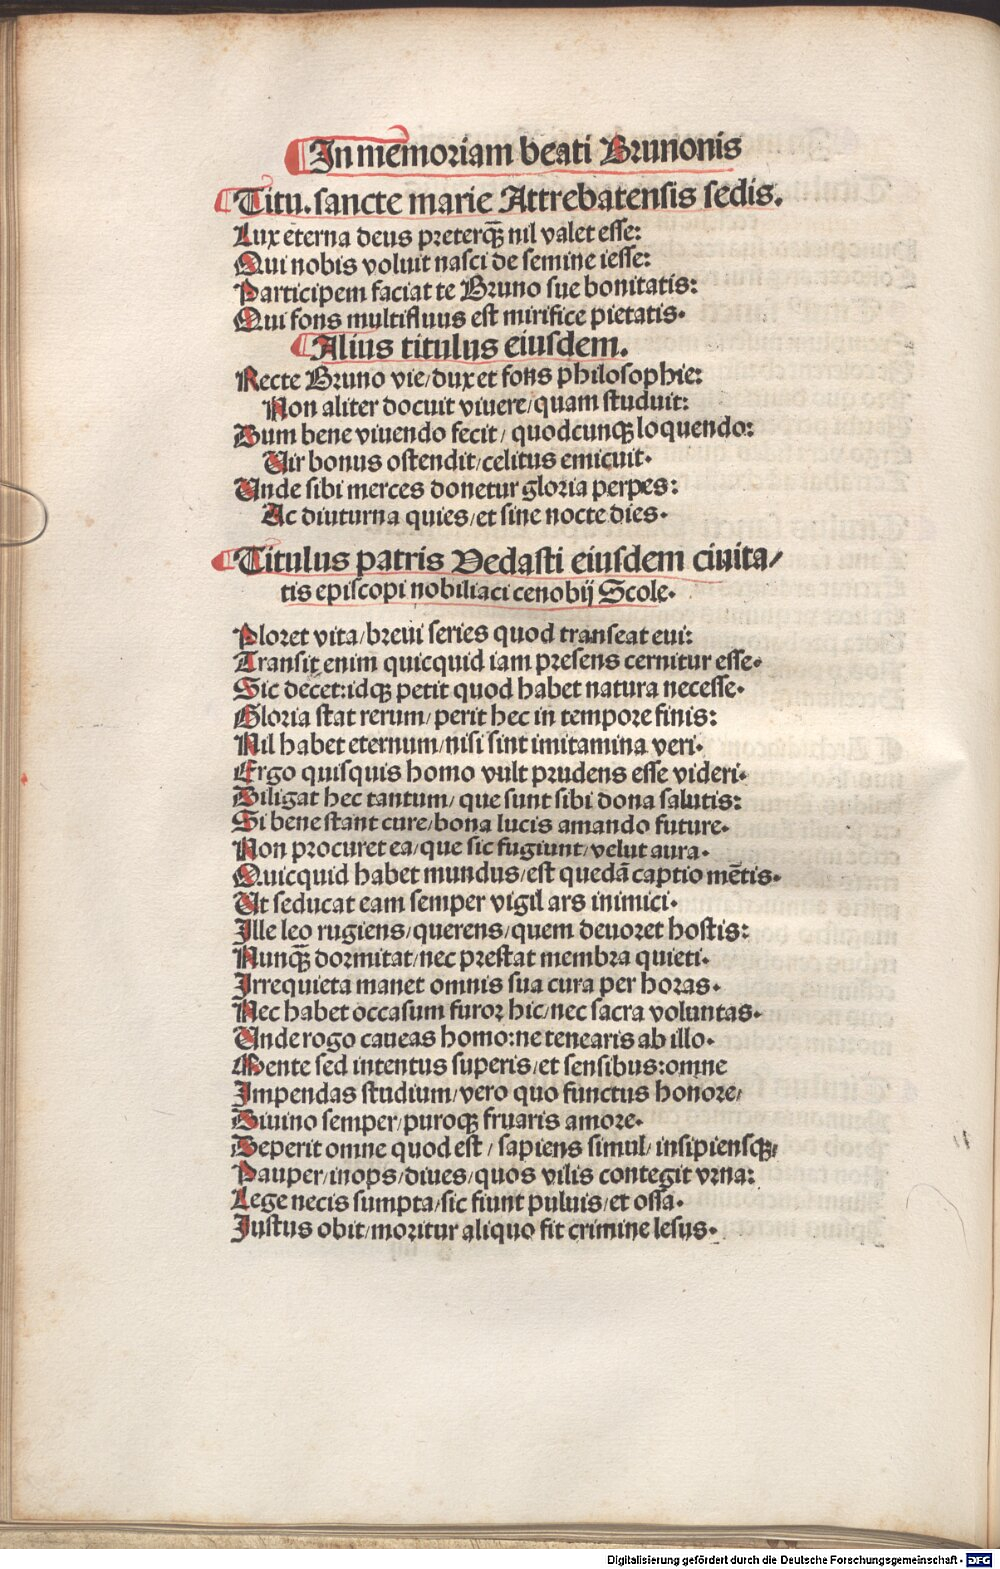 In memoriam beati Brunonis
Titu. sancte marie Attrebatensis sedis.
Lux eterna deus preterqȝ nil valet esse:
Qui nobis voluit nasci de semine iesse:
Participem faciat te Bruno sue bonitatis:
Qui fons multifluus est mirifice pietatis.
Alius titulus eiusdem.
Recte Bruno vie/dux et fons philosophie:
Non aliter docuit viuere/quam studuit:
Dum bene viuendo fecit/ quodcunqȝ loquendo:
Vir bonus ostendit/celitus emicuit.
Unde sibi merces donetur gloria perpes:
Ac diuturna quies/et sine nocte dies.
Titulus patris Vedasti eiusdem ciuita/
tis episcopi nobiliaci cenobij Scole.
Ploret vita/breui series quod transeat eui:
Transit enim̄ quicquid iam presens cernitur esse.
Sic decet:idqȝ petit quod habet natura necesse.
Gloria stat rerum/perit hec in tempore finis:
Nil habet eternum/nisi sint imitamina veri.
Ergo quisquis homo vult prudens esse videri.
Diligat hec tantum/ que sunt sibi dona salutis:
Si bene stant cure/bona lucis amando future.
Non procuret ea/que sic fugiunt/velut aura.
Quicquid habet mundus/est quedā captio mētis.
Ut seducat eam semper vigil ars inimici.
Ille leo rugiens/querens/quem deuoret hostis:
Nunqȝ dormitat/nec prestat membra quieti.
Irrequieta manet omnis sua cura per horas.
Nec habet occasum furor hic/nec sacra voluntas.
Unde rogo caueas homo:ne tenearis ab illo.
Mente sed intentus superis/et sensibus:omne
Impendas studium/vero quo functus honore/
Diuino semper/puroqȝ fruaris amore.
Deperit omne quod est/ sapiens simul/insipiensqȝ/
Pauper/inops/diues/quos vilis contegit vrna:
Lege necis sumpta/sic fiunt puluis/et ossa.
Justus obit/moritur aliquo fit crimine lesus.
Digitalisierung gefördert durch die Deutsche Forschungsgemeinschaft - DFG